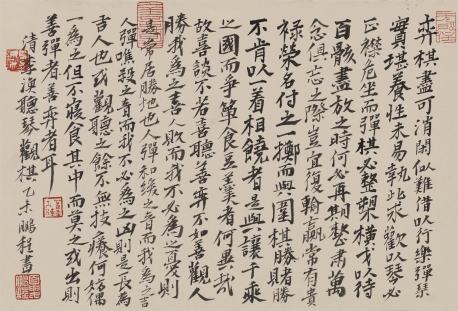 弈棋盡可消閑似難借以行樂彈琴
實堪養性未易執此求歡以琴必
正襟危坐而彈棋必整槊橫戈以待
百骸盡放之時何必再期整肅萬
念俱忘之際豈宜復輸贏常有貴
祿榮名付之一擲而與圍棋賭勝
不肯以一着相饒者是與讓千乘
之國而爭簞食豆羹者何異哉
故喜談不若喜聽善弈不如善觀人
勝我為之喜人敗而我不必為之憂則
是常居勝地也人彈和緩之音而我為之吉
人彈噍殺之音而我不必為之凶則是長為
吉人也或觀聽之餘不無技癢何妨偶
一為之但不寢食其中而莫之或出則
善彈者善弈者耳
清李漁聽琴觀棋乙未鵬程書